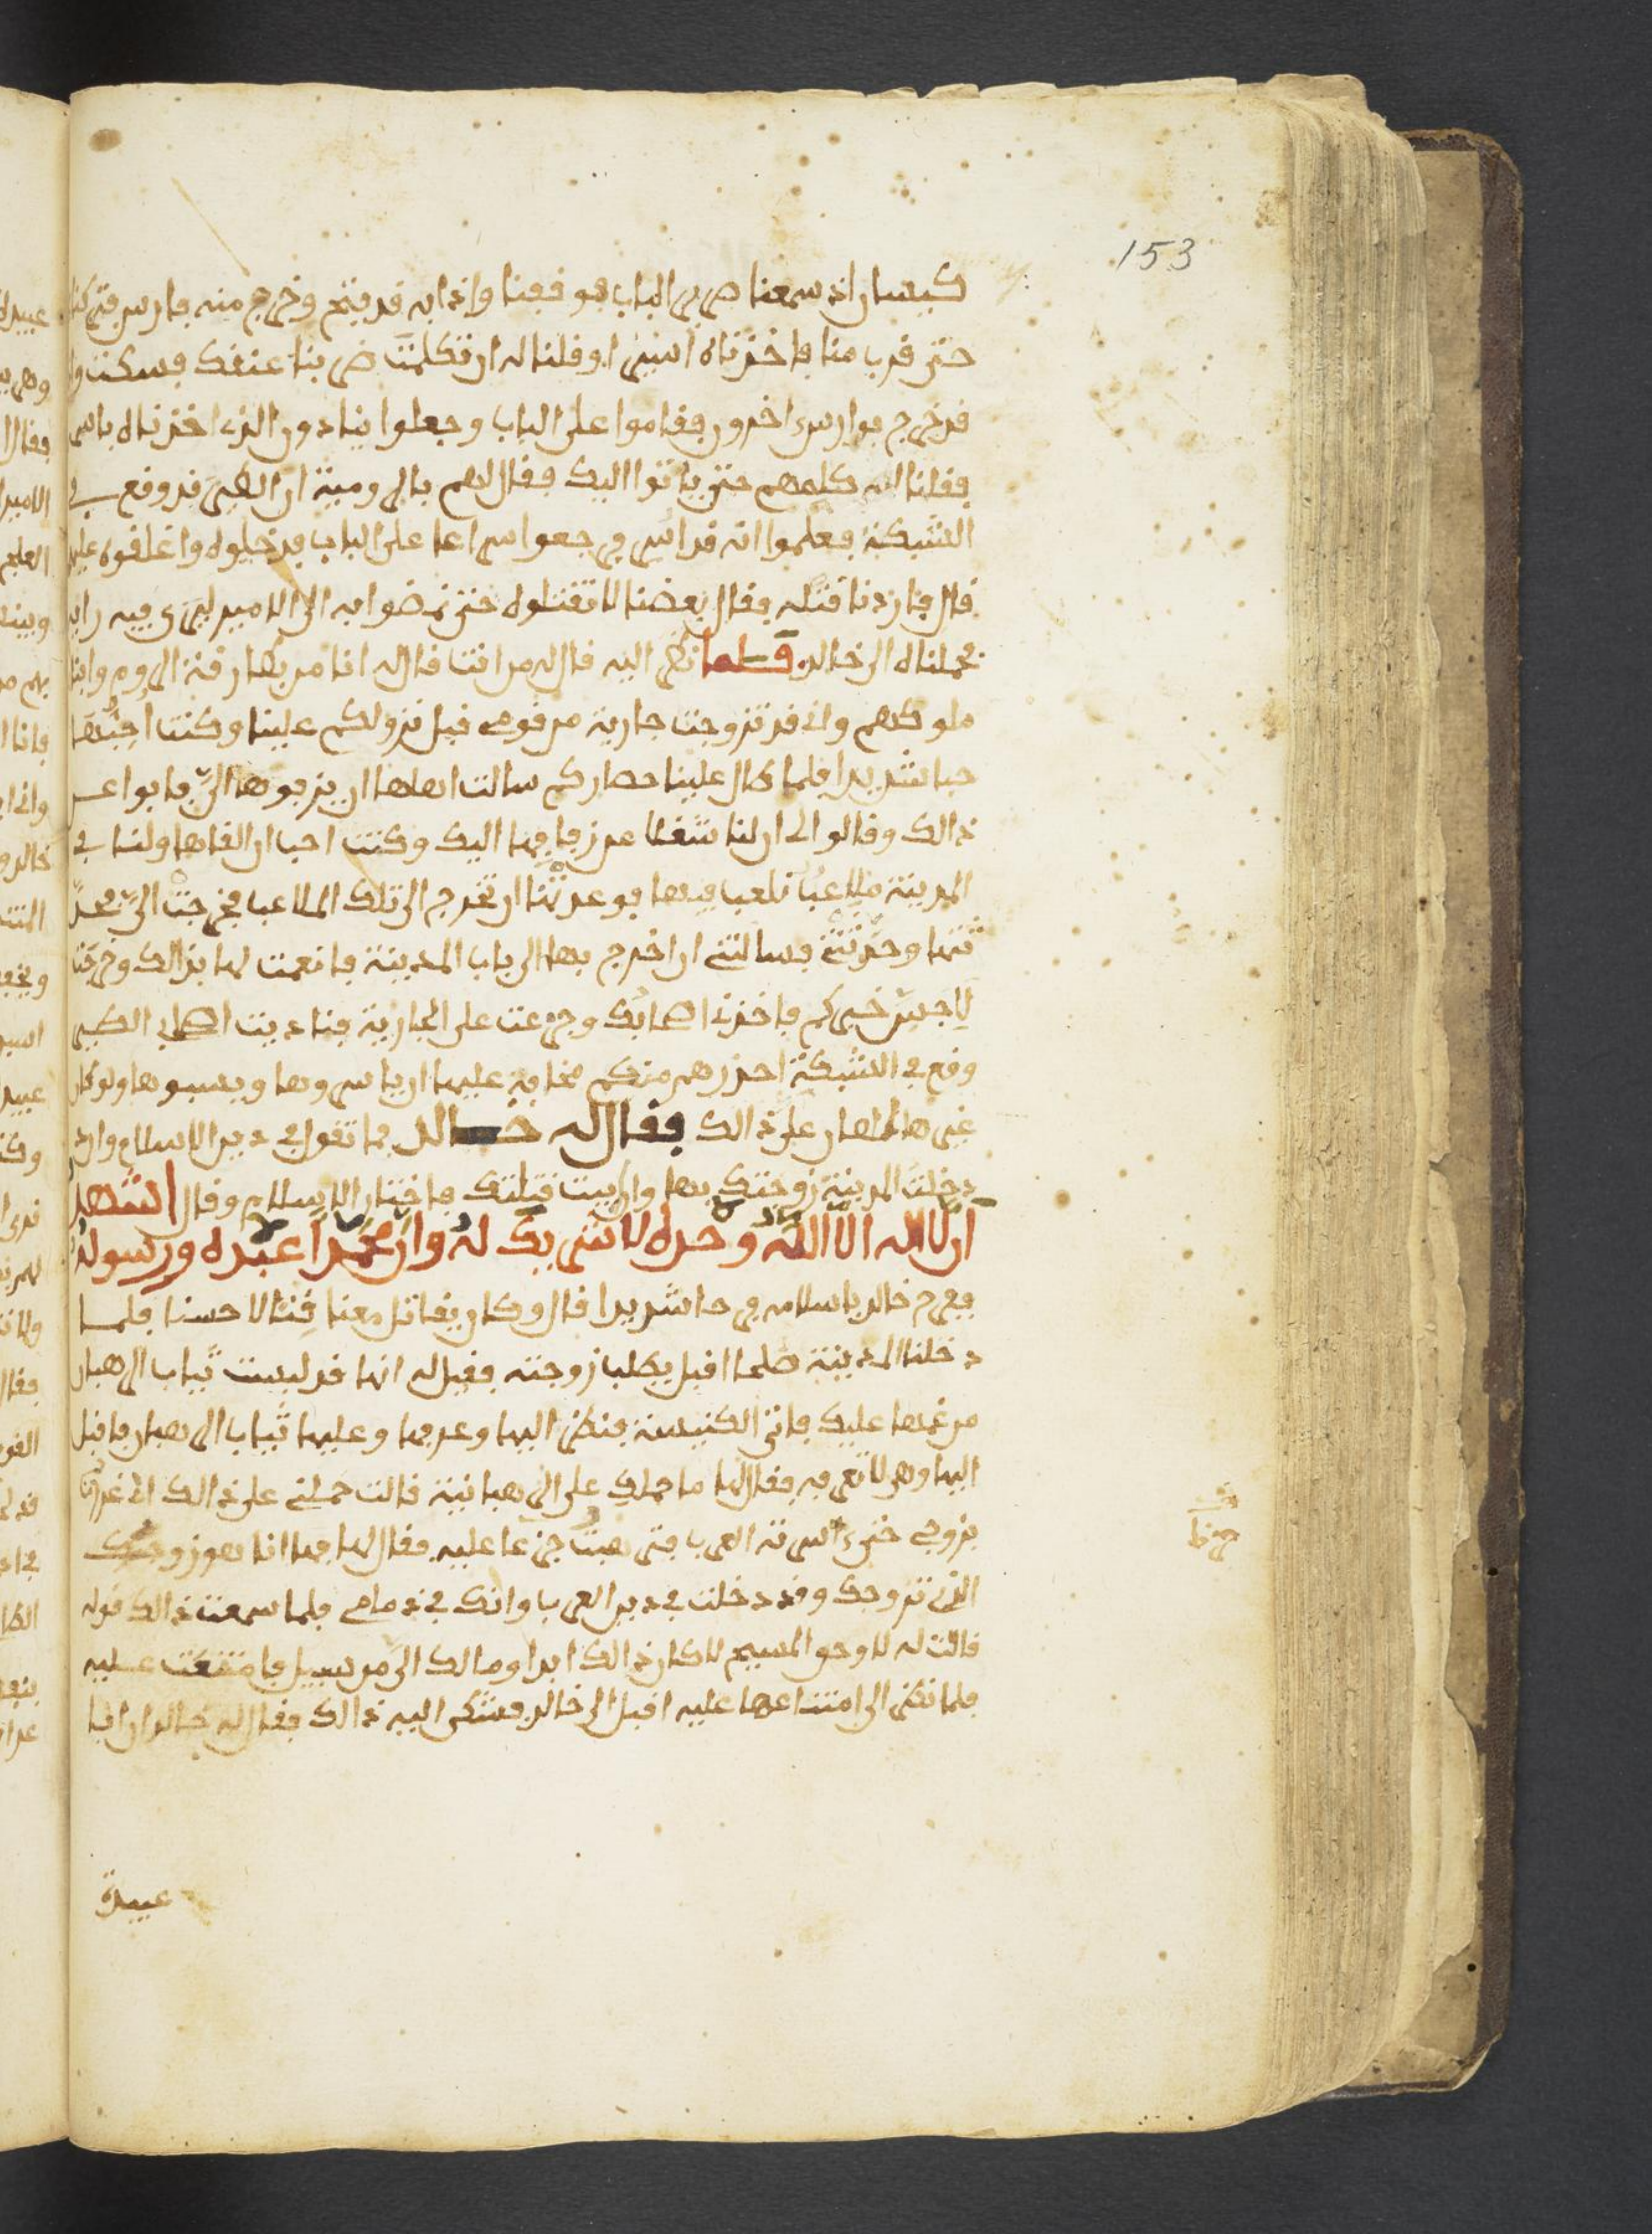 153
كيسان اذ سمعنا صرير الباب فوقفنا واذا به قد فتح وخرج منه فارس فتركنا
حتى قرب منا فاخذناه اسيرا وقلنا له ان تكلمت ضربنا عنقك فسكت واذا
قد خرج فوارس اخرون فقاموا على الباب وجعلوا ينادون الذي اخذناه باسمه
فقلنا له كلمهم حتى ياتوا اليك فقال لهم بالرومية ان الطير قد وقع في
الشبكة فعلموا انه قد اسر فرجعوا سراعا على الباب فدخلوه واغلقوه عليهم
قال فاردنا قتله فقال بعضنا لا تقتلوه حتى نمضوا به الى الامير ليرى فيه رايه
فحملناه الى خالد فلما نظر اليه قال له من انت قال له انا من بطارقة الروم وابنا
ملوكهم واني قد تزوجت جارية من قومي قبل نزولكم علينا وكنت احبها
حبا شديدا فلما طال علينا حصاركم سالت اهلها ان يزفوها الي فابوا عن
ذالك وقالوا لي ان لنا شغلا عن زفافها اليك وكنت احب ان القاها ولنا في
المدينة ملاعب نلعب فيها فوعدتها ان تخرج الى تلك الملاعب فخرجت الي فحد
ثتها وحدثتني فسالتني ان اخرج بها الى باب المدينة فانعمت لها بذالك وخرجنا
لاجسر خبركم فاخذني اصحابك وجزعت على الجارية فناديت اصحابي الطير
وقع في الشبكة احذرهم منكم مخافة عليها ان ياسروها ويسبوها ولو كان
غيرها لهان علي ذالك فقال له خالد فما تقول في دين الاسلام وان
دخلت المدينة زوجتك بها وان ابيت قتلتك فاختار الاسلام وقال اشهد
ان لا اله الا الله وحده لا شريك له وان محمدا عبده ورسوله
ففرح خالد باسلامه فرحا شديدا قال وكان يقاتل معنا قتالا حسنا فلما
دخلنا المدينة صلحا اقبل يطلب زوجته فقيل له انها قد لبست ثياب الرهبان
من غمها عليك فاتى الكنيسة فنظر اليها وعرفها وعليها ثياب الرهبان فاقبل
اليها وهي لا تعرفه فقال لها ما حملك على الرهبانية قالت حملني على ذالك اني غررت
بزوجي حتى اسرته العرب فترهبت جزعا عليه فقال لها فها انا هو زوجك
الذي تزوجك وقد دخلت في دين العرب وانك في ذمامي فلما سمعت ذالك قوله
قالت له لا وحق المسيح لا كان ذالك ابدا ومالك الي من سبيل فامتنعت عليه
فلما نظر الى امتناعها عليه اقبل الى خالد فشكى اليه ذالك فقال له خالد ان ابا
عبيدة